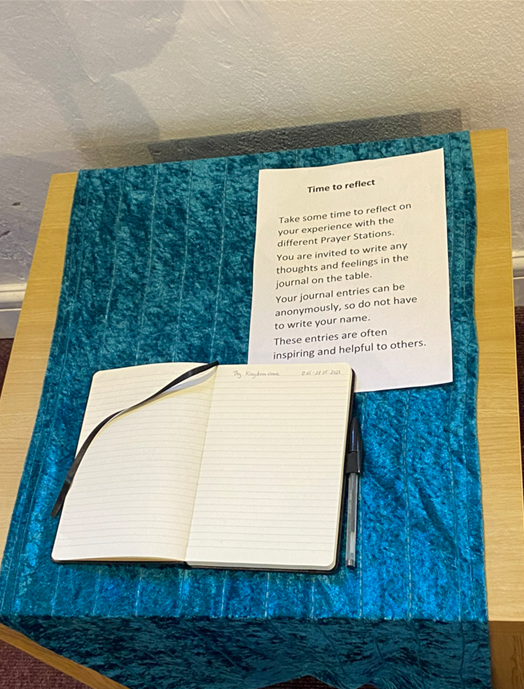 Time to reflect
Take some time to reflect on
your experience with the
different Prayer Stations.
You are invited to write any
thoughts and feelings in the
journal on the table.
Your journal entries can be
anonymously, so do not have
to write your name.
These entries are often
inspiring and helpful to others.
Thy Kingdom come